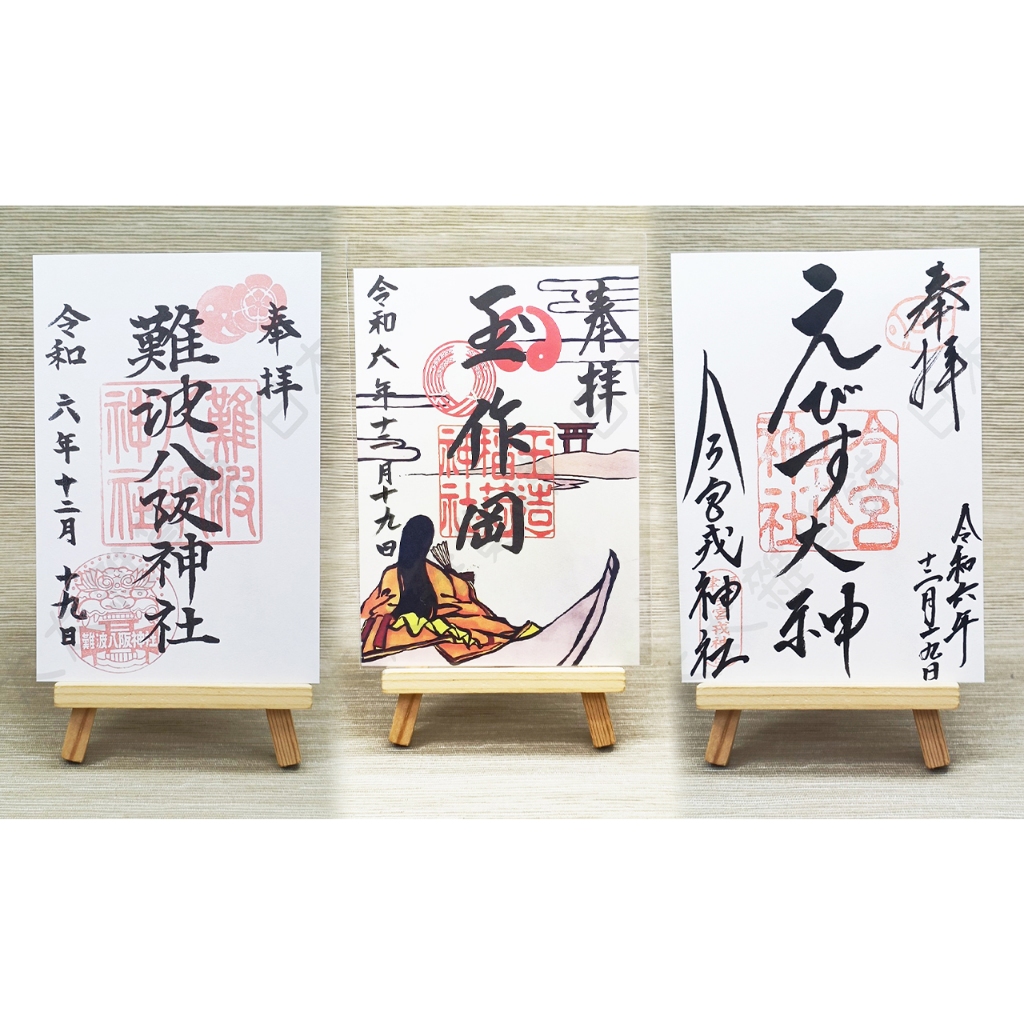 奉拝
難波八阪神社
令和 六年 十二月 十九日
難波八阪神社
難波八阪神社
奉拝
玉作岡
令和六年十二月十九日
玉造稲荷神社
奉拝
えびす大神
今宮戎神社
令和六年
十二月十九日
今宮
神社